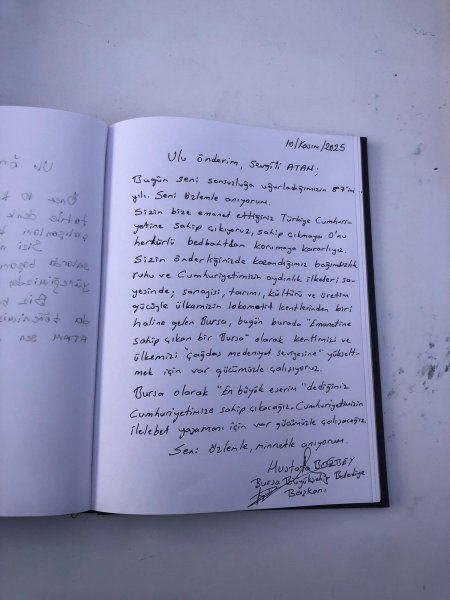 10/Kasım/2025
Ulu önderim, Sevgili ATAM;
Bugün seni sonsuzluğa uğurladığımızın 87'inci
yılı. Seni özlemle anıyorum.
Sizin bize emanet ettiğiniz Türkiye Cumhuri-
yetine sahip çıkıyoruz, sahip çıkmaya O'nu
her türlü bedbahttan korumaya kararlıyız.
Sizin önderliğinizde kazandığımız bağımsızlık
ruhu ve Cumhuriyetimizin aydınlık ilkeleri sa-
yesinde; sanayisi, tarımı, kültürü ve üretim
gücüyle ülkemizin lokomotif kentlerinden biri
haline gelen Bursa, bugün burada "Emanetine
sahip çıkan bir Bursa" olarak kentimizi ve
ülkemizi "çağdaş medeniyet seviyesine" yükselt-
mek için var gücümüzle çalışıyoruz.
Bursa olarak "En büyük eserim" dediğiniz
Cumhuriyetimize sahip çıkacağız. Cumhuriyetimizin
ilelebet yaşaması için var gücümüzle çalışacağız.
Seni özlemle, minnetle anıyorum.
Mustafa BOZBEY
Bursa Büyükşehir Belediye
Başkanı